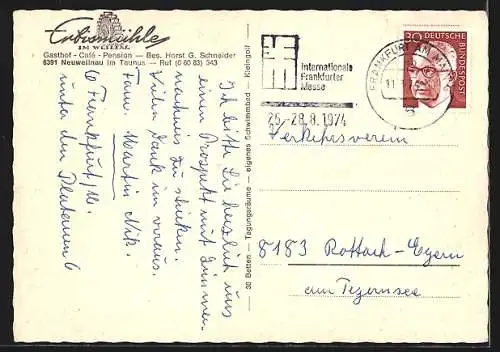 Erbismühle
IM WEILTAL
Gasthof - Café - Pension — Bes. Horst G. Schneider
6391 Neuweilnau im Taunus — Ruf (0 60 83) 343
30 Betten — Tagungsräume — eigenes Schwimmbad — Kleingolf
Ich bitte Sie herzlich uns
einen Prospekt mit Zimmer-
nachweis zu schicken.
Vielen Dank im voraus.
Fam. Martin
6 Frankfurt/M.
unter den Platanen 6
Internationale
Frankfurter
Messe
25.-28.8.1974
FRANKFURT AM MAIN
30 DEUTSCHE
BUNDESPOST
Verkehrsverein
8183 Rottach-Egern
am Tegernsee